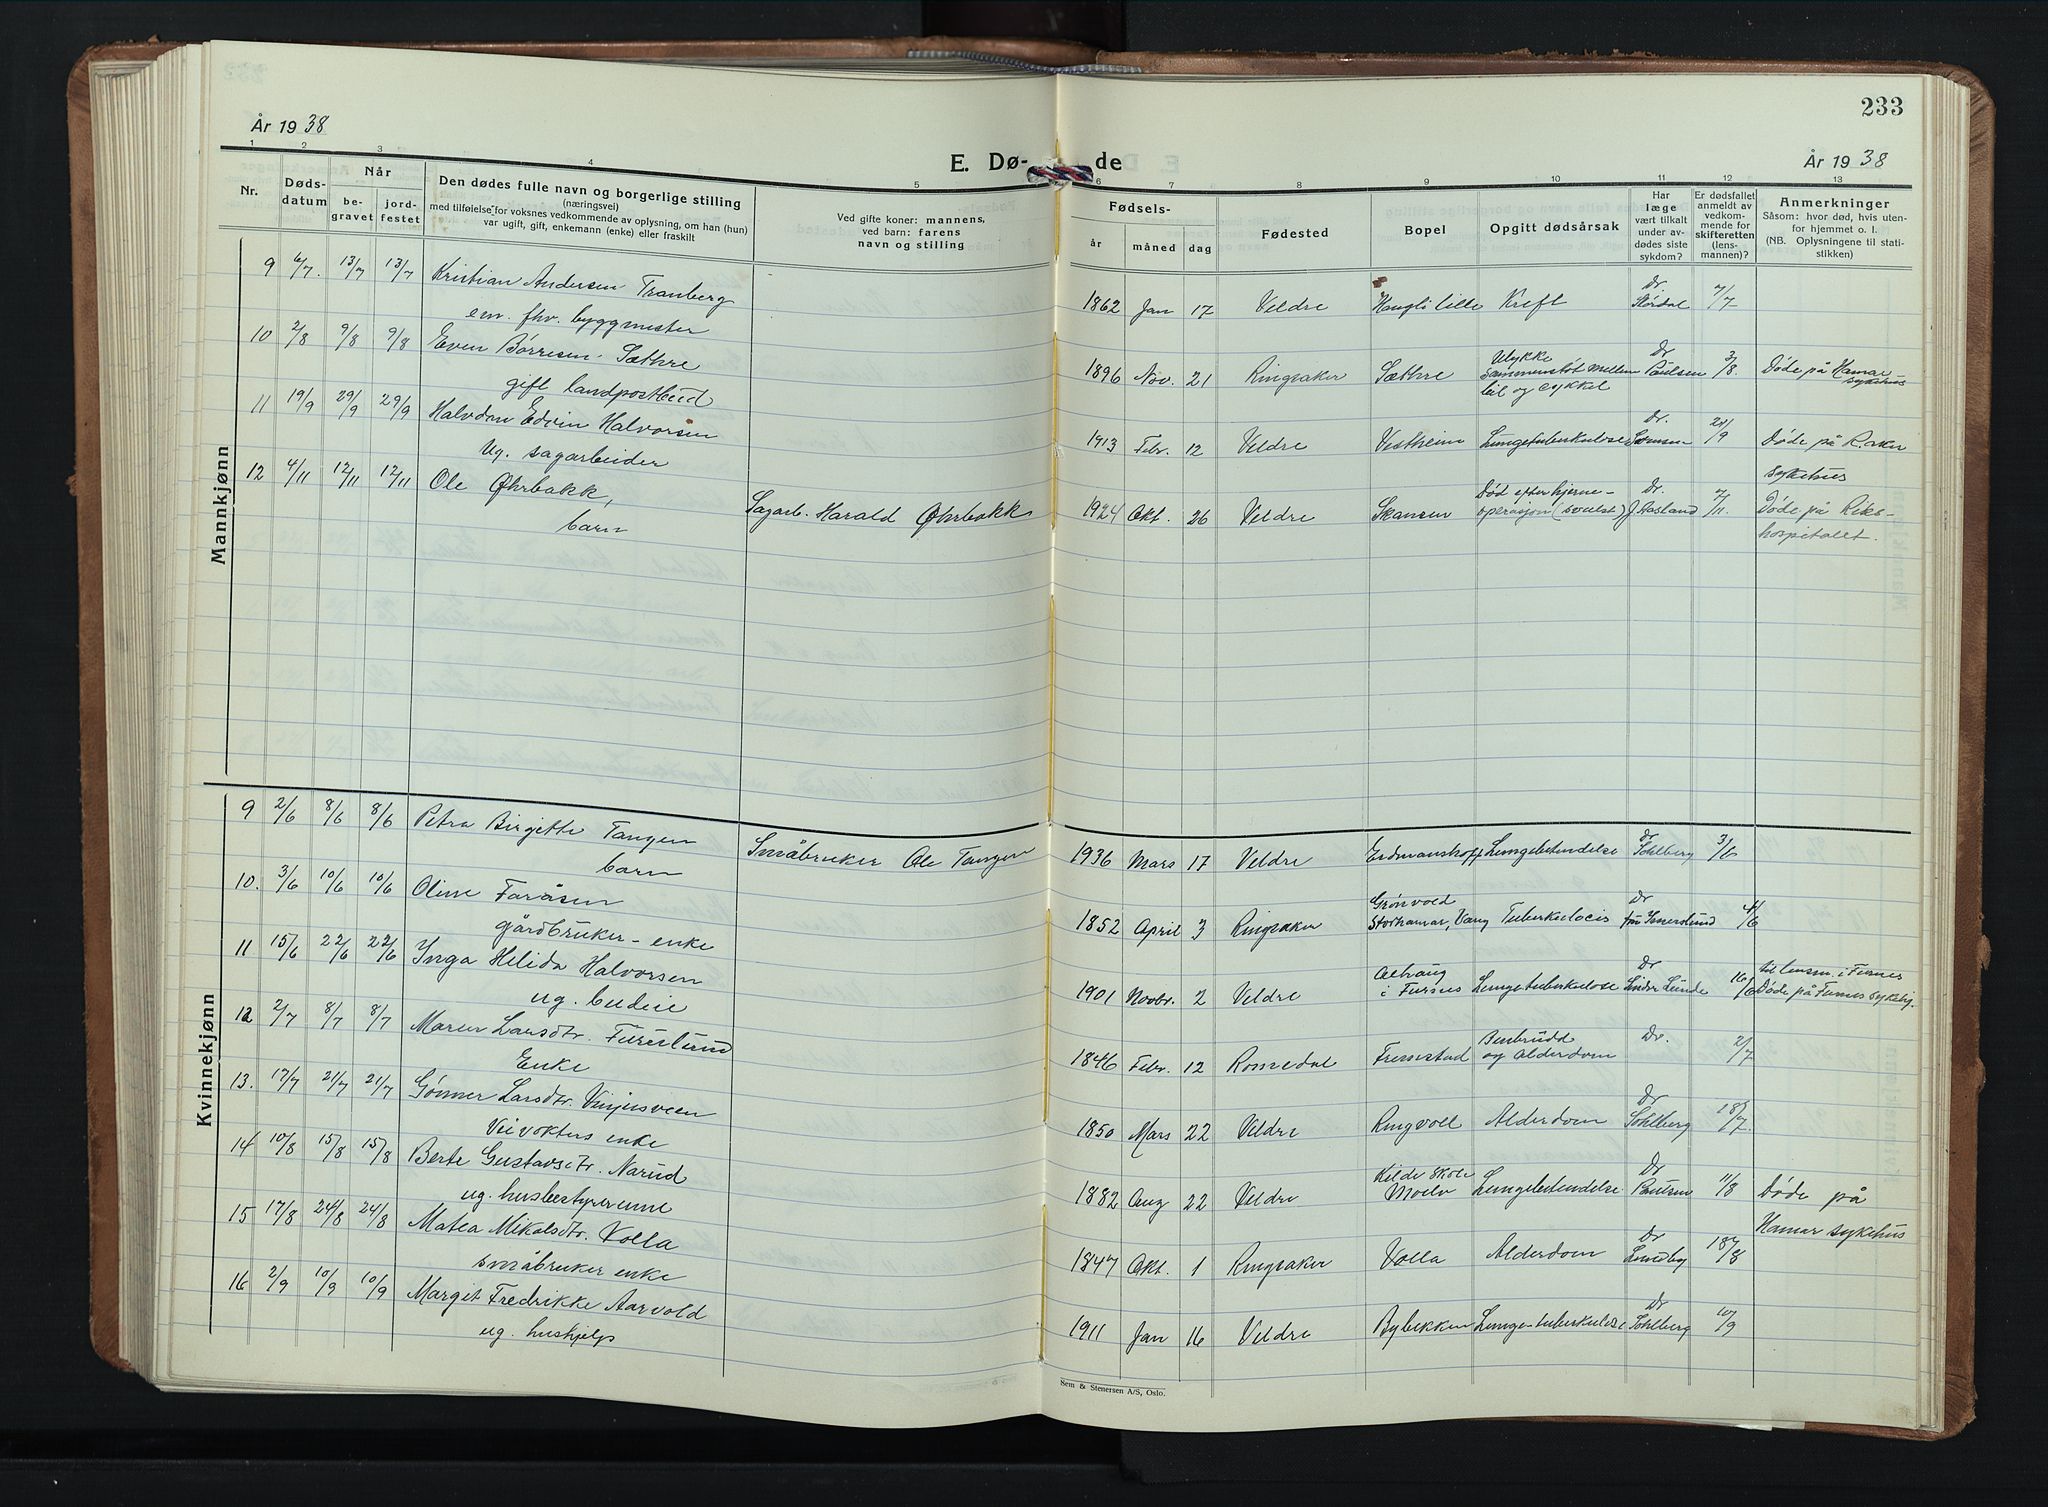 233
År 1938
E. Dø-
de
År 1938
1 2 3 4 5 6 7 8 9 10 11 12 13
Nr.
Døds-
datum
Når
be-
gravet
jord-
festet
Den dødes fulle navn og borgerlige stilling
(næringsvei)
med tilføielse for voksnes vedkommende av oplysning, om han (hun)
var ugift, gift, enkemann (enke) eller fraskilt
Ved gifte koner: mannens,
ved barn: farens
navn og stilling
Fødsels-
år
måned
dag
Fødested
Bopel
Opgitt dødsårsak
Har
læge
vært tilkalt
under av-
dødes siste
sykdom?
Er dødsfallet
anmeldt av
vedkom-
mende for
skifteretten
(lens-
mannen)?
Anmerkninger
Såsom: hvor død, hvis uten-
for hjemmet o. l.
(NB. Oplysningene til stati-
stikken)
Mannkjønn
9 6/7. 13/7 13/7 Kristian Andersen Tranberg
em. fhv. byggmester
1862 Jan 17 Veldre Haugli lille Kreft Dr. Stördal 7/7
10 2/8 9/8 9/8 Even Børresen Sæthre
gift landpostbud
1896 Nov. 21 Ringsaker Sæthre Ulykke
sammenstöt mellem
bil og cykkel
Dr. Paulsen 3/8. Døde på Hamar
sykehus
11 19/9 29/9 29/9 Halvdan Edvin Halvorsen
Ug. sagarbeider
1913 Febr. 12 Veldre Vestheim Lungetuberkulose Dr. 21/9 Døde på R.aker
sykehus
12 4/11 12/11 12/11 Ole Øhrbakk,
barn
Sagarb. Harald Øhrbakk
1924 Okt. 26 Veldre Skansen Död efter hjerne-
operasjon (svulst) Dr. 7/11. Døde på Riks-
hospitalet.
Kvinnekjønn
9 2/6 8/6 8/6 Petra Birgitte Tangen
barn
Småbruker Ole Tangen
1936 Mars 17 Veldre Erdmanshoff Lungebetendelse dr Sohlberg 3/6
10. 3/6 10/6 10/6 Oline Faråsen
gårdbruker-enke
1852 April 3 Ringsaker Grønvold
Storhamar, Vang Tuberkulosis Dr fru Smerslund 4/6
11 15/6 22/6 22/6 Inga Helida Halvorsen
ug. budeie
1901 Novbr. 2 Veldre
i Furnes Lungetuberkulose Dr Linder Lunde 16/6 til lensm. i Furnes
Døde på Furnes sykehj.
12 2/7 8/7 8/7 Maren Larsdtr. Furulund
Enke
1846 Febr. 12 Romedal Fremstad Benbrudd
og Alderdom Dr. 2/7
13. 17/7 21/7 21/7 Gønner Larsdtr. Vinjusveen
Veivokters enke
1850 Mars 22 Veldre Ringvoll Alderdom Dr Sohlberg 18/7.
14 10/8 15/8 15/8 Berte Gustavsdtr. Narud
ug. husbestyrerinne
1882 Aug 22 Veldre Kilde skole
Moelv Lungebetendelse Dr Paulsen 11/8 Døde på
Hamar sykehus
15 17/8 24/8 24/8 Matea Mikalsdtr. Volla
småbruker enke
1847 Okt. 1 Ringsaker Volla Alderdom Dr Lundby 18/8
16 2/9 10/9 10/9 Margit Fredrikke Aarvold
ug. hushjelp
1911 Jan 16 Veldre Bybekken Lungetuberkulose Dr Sohlberg 10/9
Sem & Stenersen A/S, Oslo.